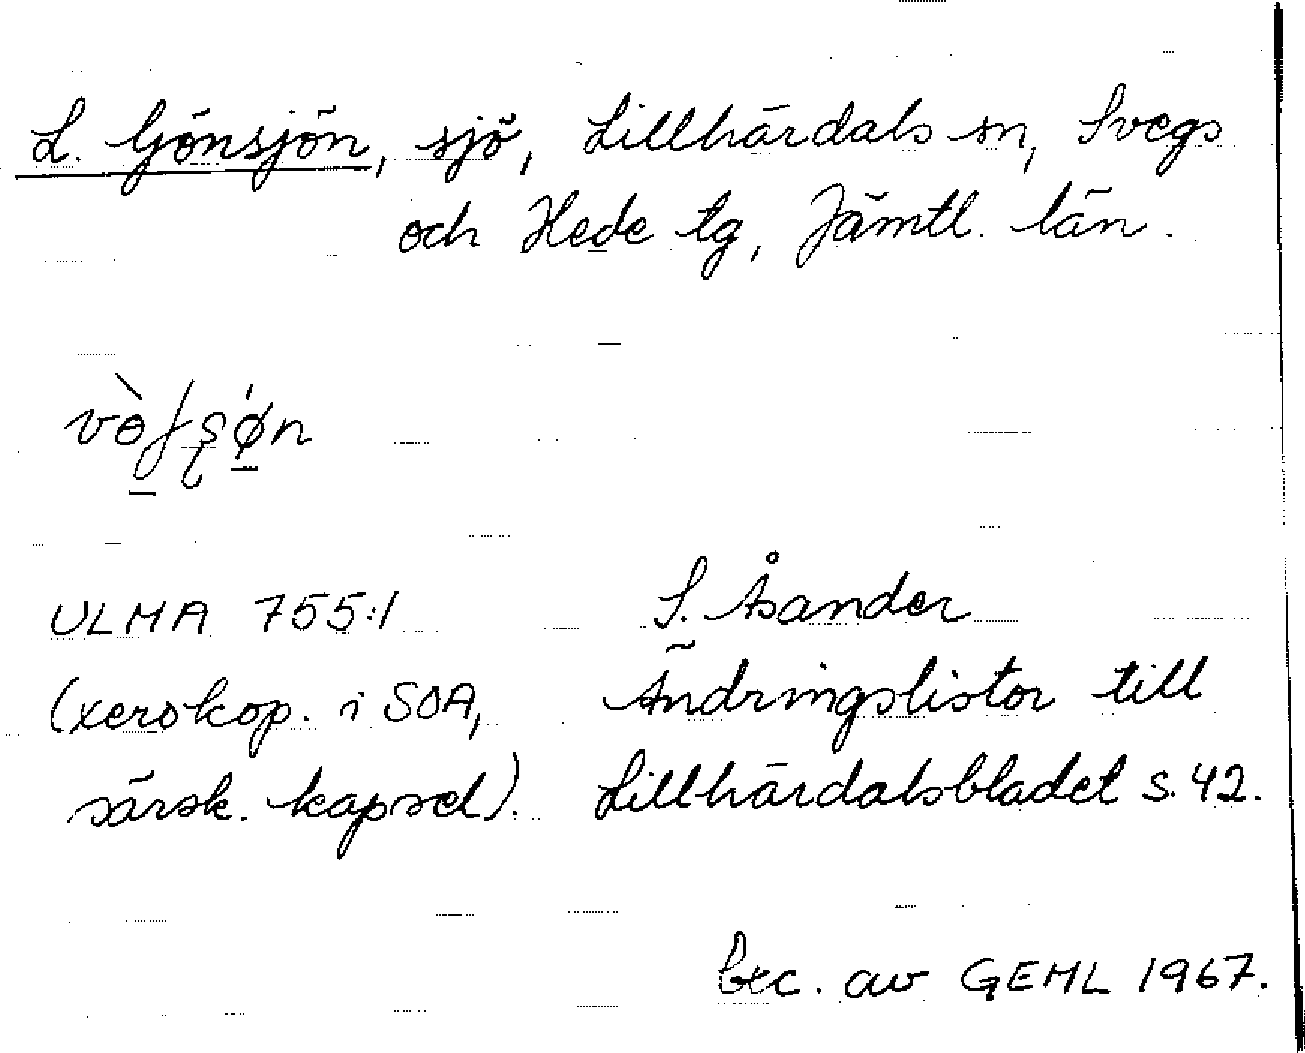 L. Gönsjön, sjö, Lillhärdals sn, Svegs
och Hede tg, Jämtl. län.
ULMA 755:1
(xerokop. i SOA,
särsk. kapsel).
S. Åsander
Ändringslistor till
Lillhärdalsbladet s. 42.
bec. av GEHL 1967.